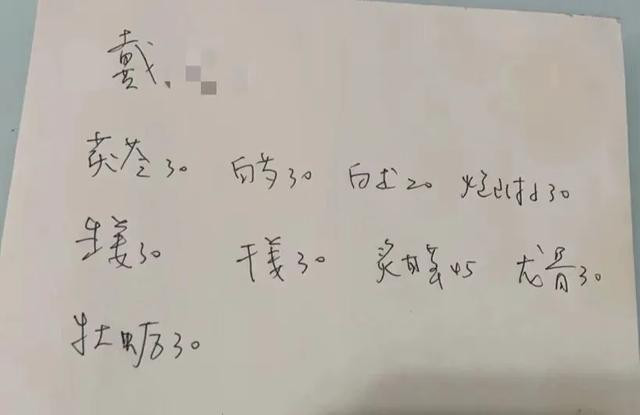 戴、
茯苓30 白芍30 白术20 炮附30
生姜30 干姜30 炙甘草45 龙骨30
牡蛎30